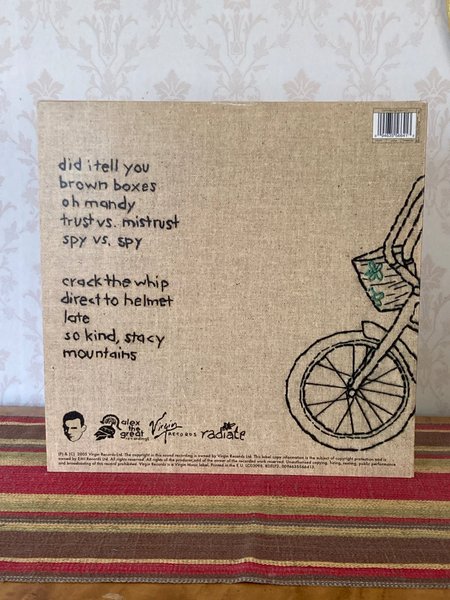 did i tell you
brown boxes
oh mandy
trust vs. mistrust
spy vs. spy
crack the whip
direct to helmet
late
so kind, stacy
mountains
alex
the
great
Virgin
RECORDS
radiate
(P) & (C) 2005 Virgin Records Ltd. The copyright in this sound recording is owned by Virgin Records Ltd. This label copy information is the subject of copyright protection and is
owned by EMI Records Ltd. All rights reserved. All rights of the producer and of the owner of the recorded work reserved. Unauthorised copying, hiring, renting, public performance
and broadcasting of this record prohibited. Virgin Records is a Virgin Music label. Printed in the E.U. LC03098.